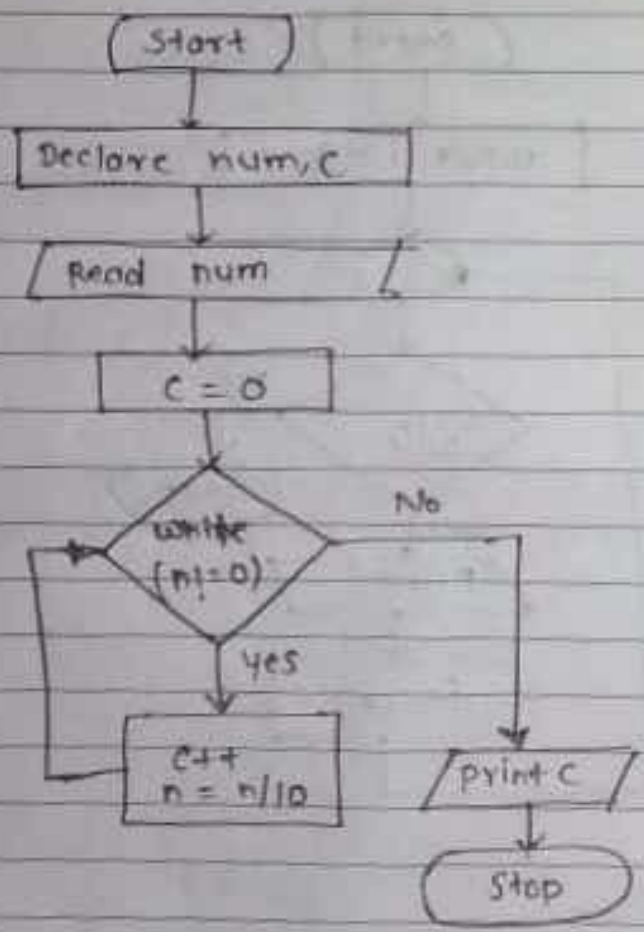 Start
Declare num, c
Read num
c = 0
while
(n!=0)
No
yes
c++
n = n/10
print c
Stop